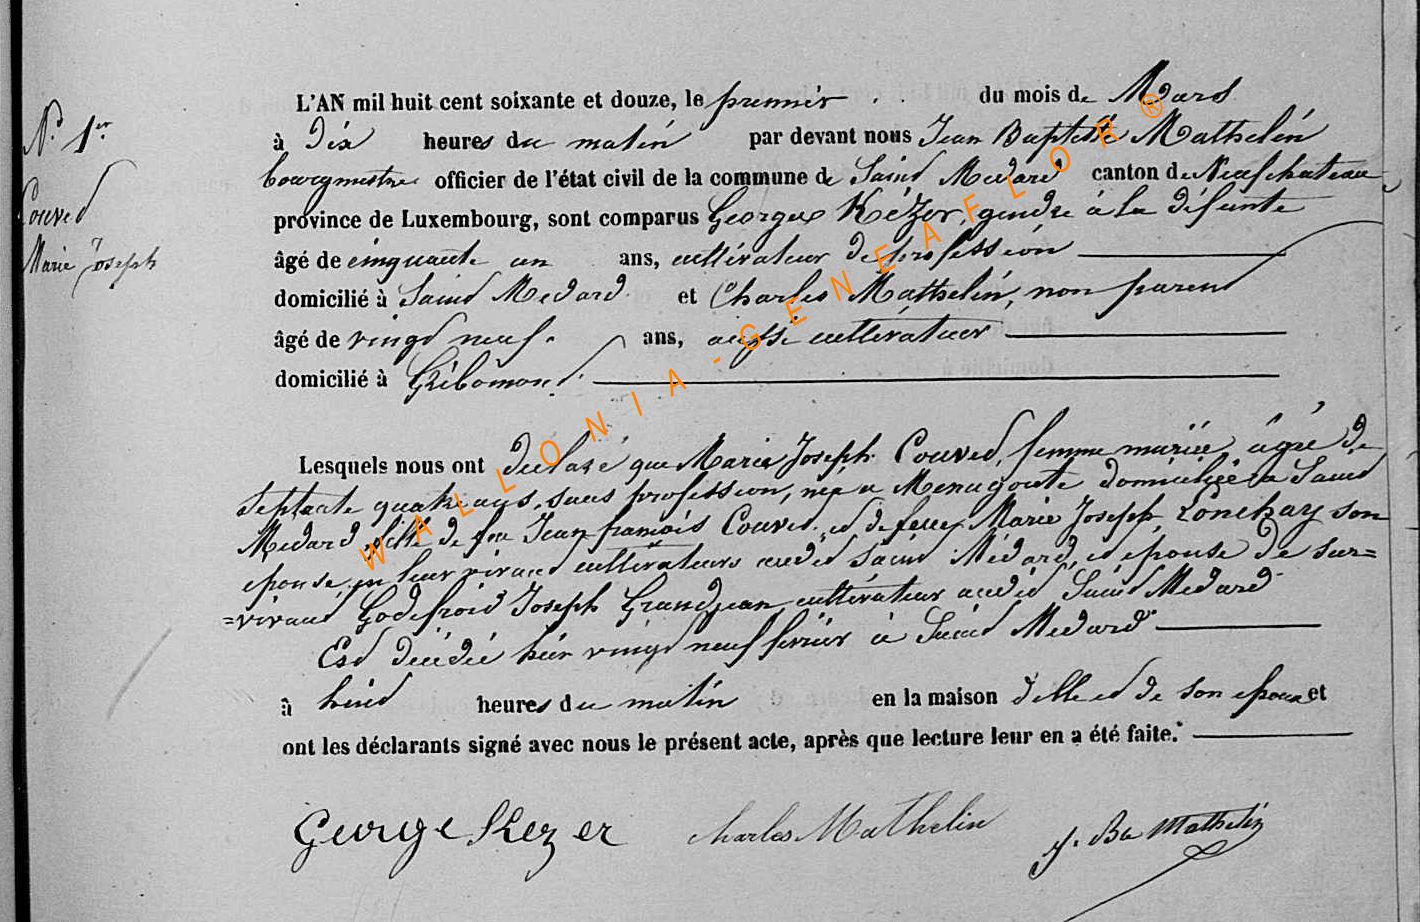 N.º 1er
Couved
Marie Joseph
L'AN mil huit cent soixante et douze, le premier du mois de Mars
à Dix heures du matin par devant nous Jean Baptiste Mathelin
bourgmestre officier de l'état civil de la commune de Saind Medard canton de Neufchateau
province de Luxembourg, sont comparus Georges Kézer, gendre à la défunte
âgé de cinquante un ans, cultivateur de profession
domicilié à Saind Medard et Charles Mathelin, non parend
âgé de vingd neuf ans, aussi cultivateur
domicilié à Gribomond.
Lesquels nous ont déclaré que Marie Joseph Couved, femme mariée, âgée de
septante quatre ans, sans profession, née a Menugoute domiciliée a Saind
Medard, fille de feu Jean françois Couved, ed de feue Marie Joseph Lonchay son
epouse, en leur vivand cultivateurs audid Saind Médard, ed epouse de sur=
=vivand Godefroid Joseph Grandjean cultivateur audid Saind Medard
Esd décédée hier vingd neuf février à Saind Medard
à huid heures du matin en la maison d'elle ed de son epoux et
ont les déclarants signé avec nous le présent acte, après que lecture leur en a été faite.
George Kezer Charles Mathelin J. Ba Mathelin
WALLONIA-GENEAFLOR®